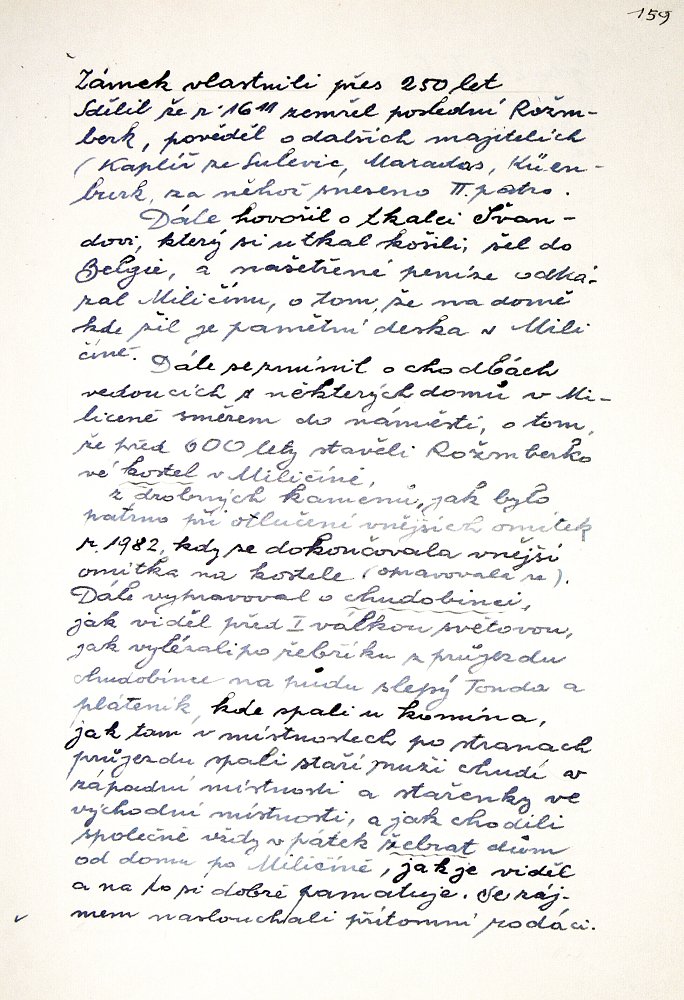 159
Zámek vlastnili přes 250 let
Sdělil že r. 1611 zemřel poslední Rožm-
berk, pověděl o dalších majitelích
(Kaplíř ze Sulevic, Maradas, Küen-
burk, za něhož sneseno II. patro.
Dále hovořil o tkalci Švan-
dovi, který si utkal košili, šel do
Belgie, a našetřené peníze odká-
zal Miličínu, o tom, že na domě
kde žil je pamětní deska v Mili
číně.
Dále se zmínil o chodbách
vedoucích z některých domů v Mi-
ličíně směrem do náměstí, o tom,
že před 600 lety stavěli Rožmberko
vé kostel v Miličíně,
z drobných kamenů, jak bylo
patrno při otlučení vnějších omítek
r. 1982, kdy se dokončovala vnější
omítka na kostele (opravovala se).
Dále vypravoval o chudobinci,
jak viděl před I válkou světovou,
jak vylézali po žebříku z průjezdu
chudobince na půdu slepý Tonda a
pláteník, kde spali u komína,
jak tam v místnostech po stranách
průjezdu spali staří muži chudí v
západní místnosti a stařenky ve
východní místnosti, a jak chodili
společně vždy v pátek žebrat dům
od domu po Miličíně, jak je viděl
a na to si dobře pamatuje. Se záj-
mem naslouchali přítomní rodáci.